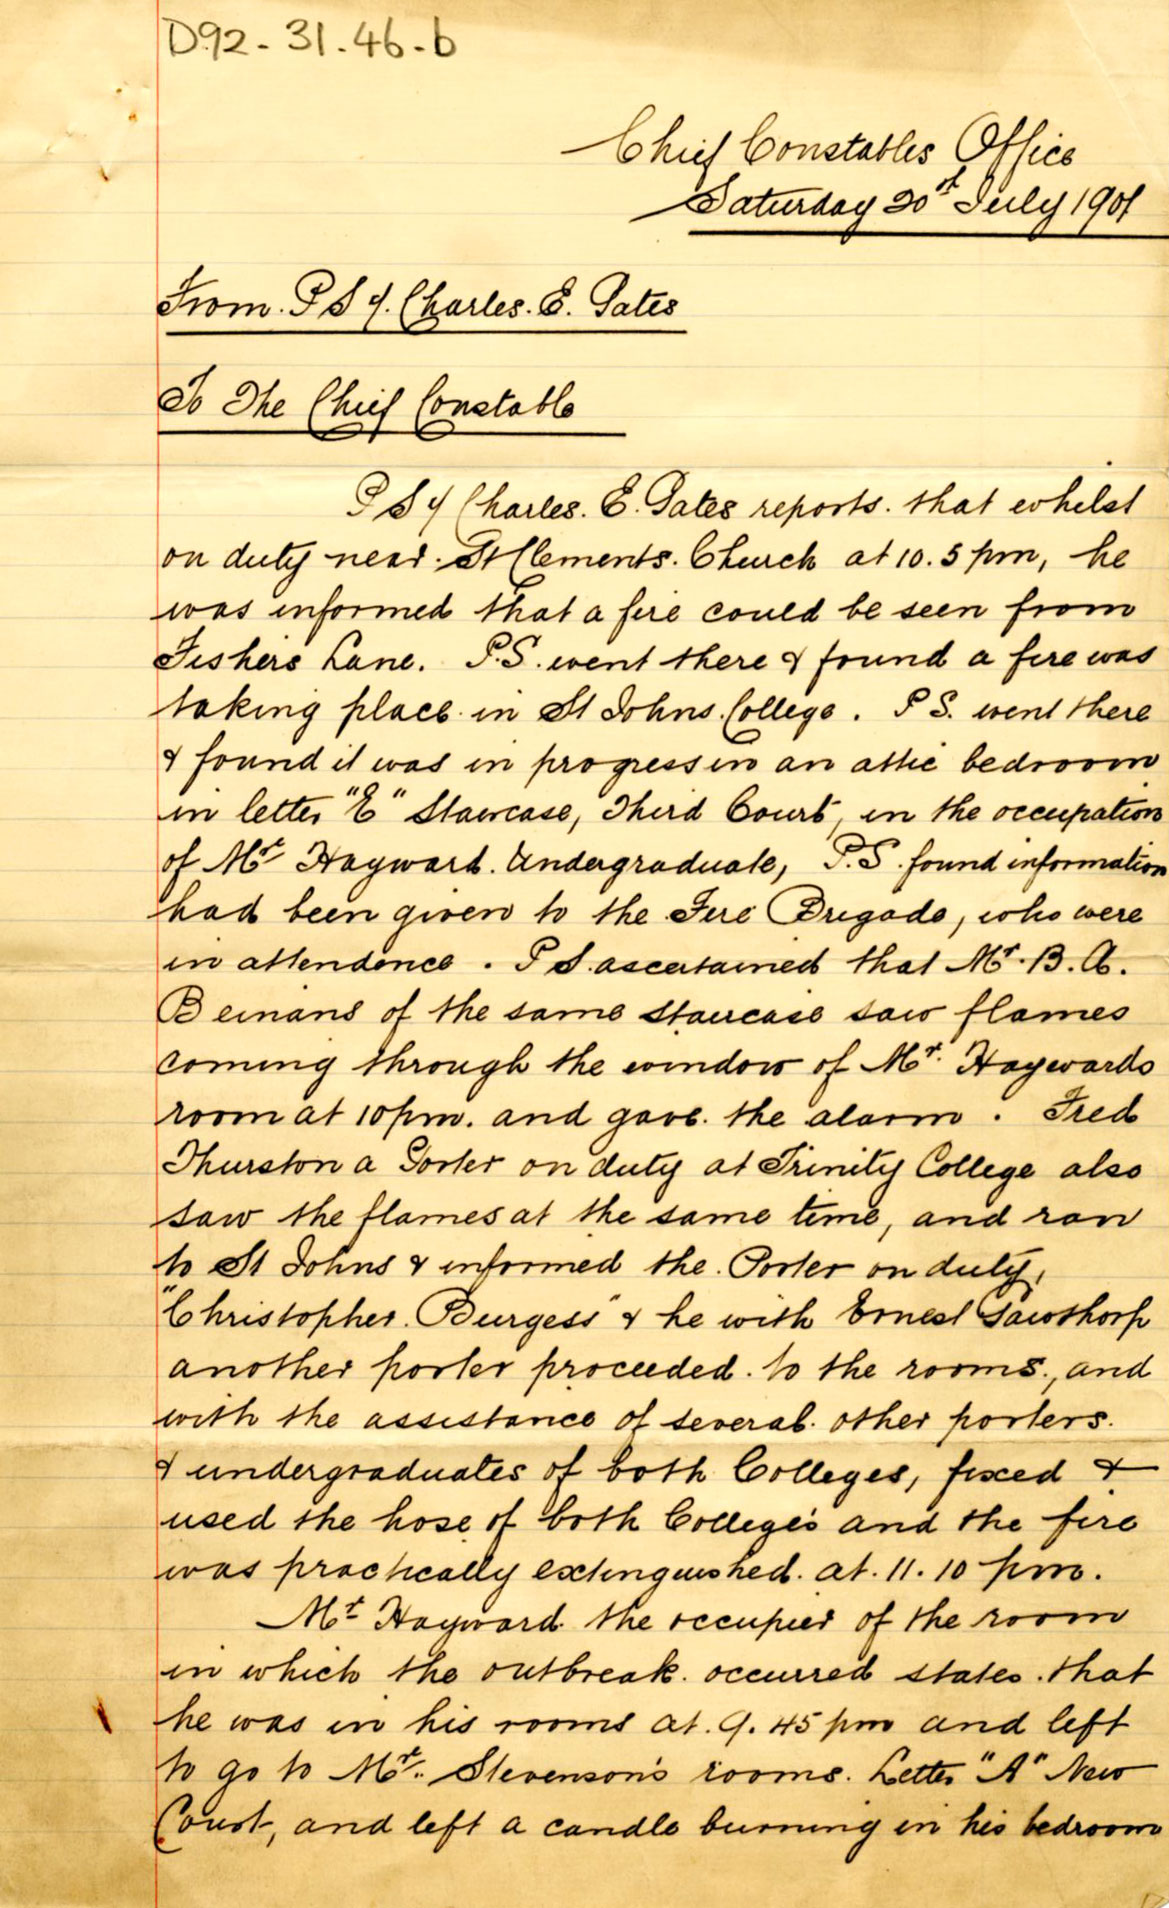 D92-31.46-b
Chief Constables Office
Saturday 20th July 1901
From. P S 4. Charles. E. Gates
To The Chief Constable
P S 4 Charles. E. Gates reports. that whilst
on duty near. St Clements. Church at 10.5 pm, he
was informed that a fire could be seen from
Fishers Lane. P.S. went there & found a fire was
taking place in St Johns. College. P S. went there
& found it was in progress in an attic bedroom
in letter "E" Staircase, Third Court, in the occupation
of Mr Hayward. Undergraduate, P.S. found information
had been given to the Fire Brigade, who were
in attendence. P S. ascertained that Mr. B. A.
Beinans of the same staircase saw flames
coming through the window of Mr. Haywards
room at 10 pm. and gave. the alarm. Fred
Thurston a Porter on duty at Trinity College also
saw the flames at the same time, and ran
to St Johns & informed the. Porter on duty,
"Christopher. Burgess" & he with Ernest Sawthorp
another porter proceeded. to the rooms., and
with the assistance of several. other porters.
& undergraduates of both Colleges, fixed &
used the hose of both College's and the fire
was practically extinguished. at. 11.10 pm.
Mr Hayward. the occupier of the room
in which the outbreak. occurred states. that
he was in his rooms at. 9.45 pm and left
to go to Mr. Stevenson's rooms. Letter "A" New
Court, and left a candle burning in his bedroom